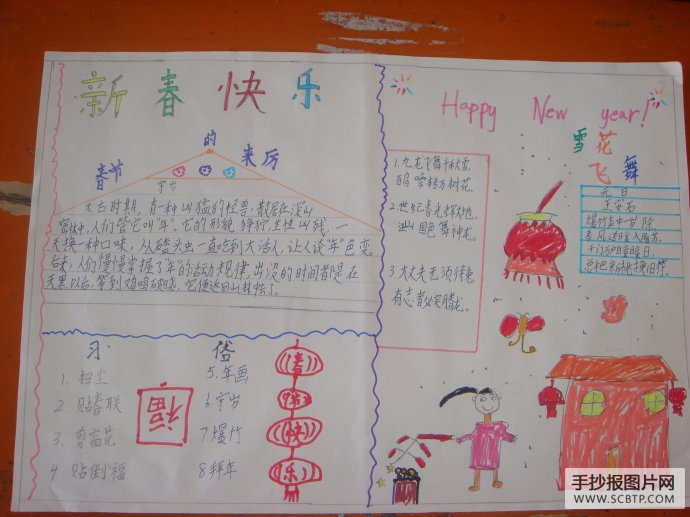 新春快乐
春节的来历
守岁
太古时期,有一种凶猛的怪兽,散居在深山
密林中,人们管它叫"年"。它的形貌狰狞,生性凶残,一
天换一种口味,从磕头虫一直吃到大活人,让人谈"年"色变。
后来,人们慢慢掌握了年的活动规律,出没的时间都是在
天黑以后,等到鸡鸣破晓,它便返回山林去了。
习俗
1. 扫尘
2. 贴春联
3. 剪窗花
4 贴倒福
5.年画
6.守岁
7爆竹
8拜年
福
春
快
乐
Happy New year!
雪花
飞舞
1.九龙飞舞千秋雪,
百鸟 万树花。
2.世纪春光
国色舞神龙。
3.大丈夫无须待兔
有志者必定腾龙。
元日
王安石
爆竹声中一岁除,
春风送暖入屠苏。
千门万户曈曈日,
总把新桃换旧符。
手抄报图片网
WWW.SCBTP.COM